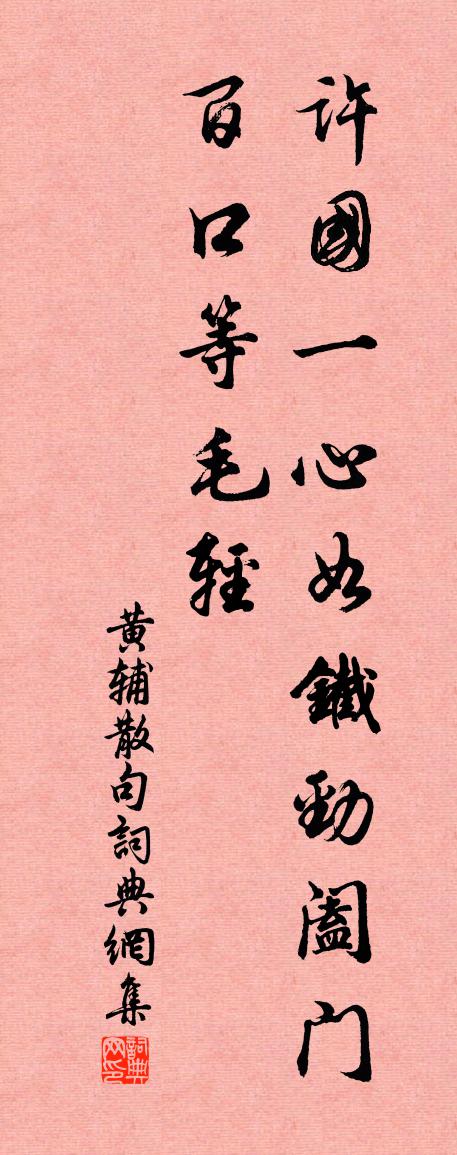 許國一心如鐵勁闔門
百口等毛輕
黃辅散句詞典網集
詞典网印